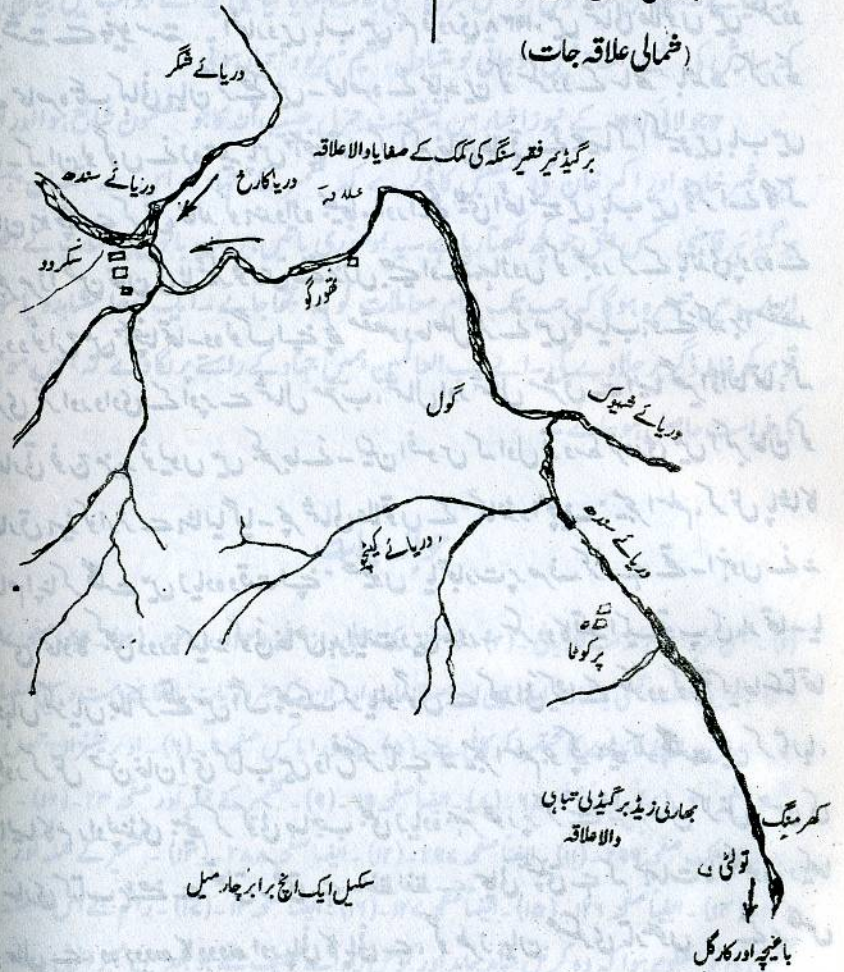 (شمالی علاقہ جات)
دریائے شگر
برگیڈئیر فقیر سنگھ کی کمک کے صفایا والا علاقہ
دریائے سندھ
دریا کا رخ
سکردو
تھورگو
گول
دریائے شیوک
دریائے سندھ
دریائے کیچو
پرکوٹا
بھارتی زیڈ برگیڈ کی تباہی
والا علاقہ
کھرمنگ
تولٹی
سکیل ایک انچ برابر چار میل
باغیچہ اور کارگل